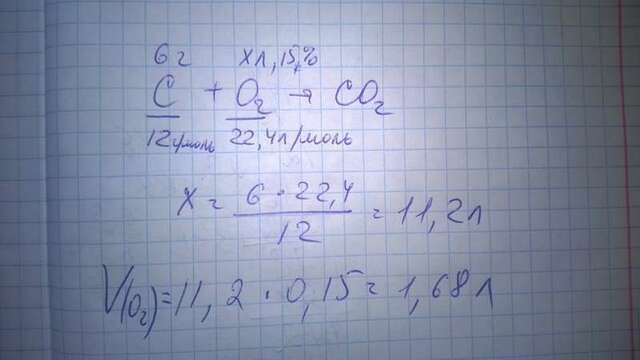 6 г хл, 15%
C + O₂ → CO₂
12 г/моль 22,4 л/моль
x = 6 · 22,4 / 12 = 11,2 л
V(O₂) = 11,2 · 0,15 = 1,68 л